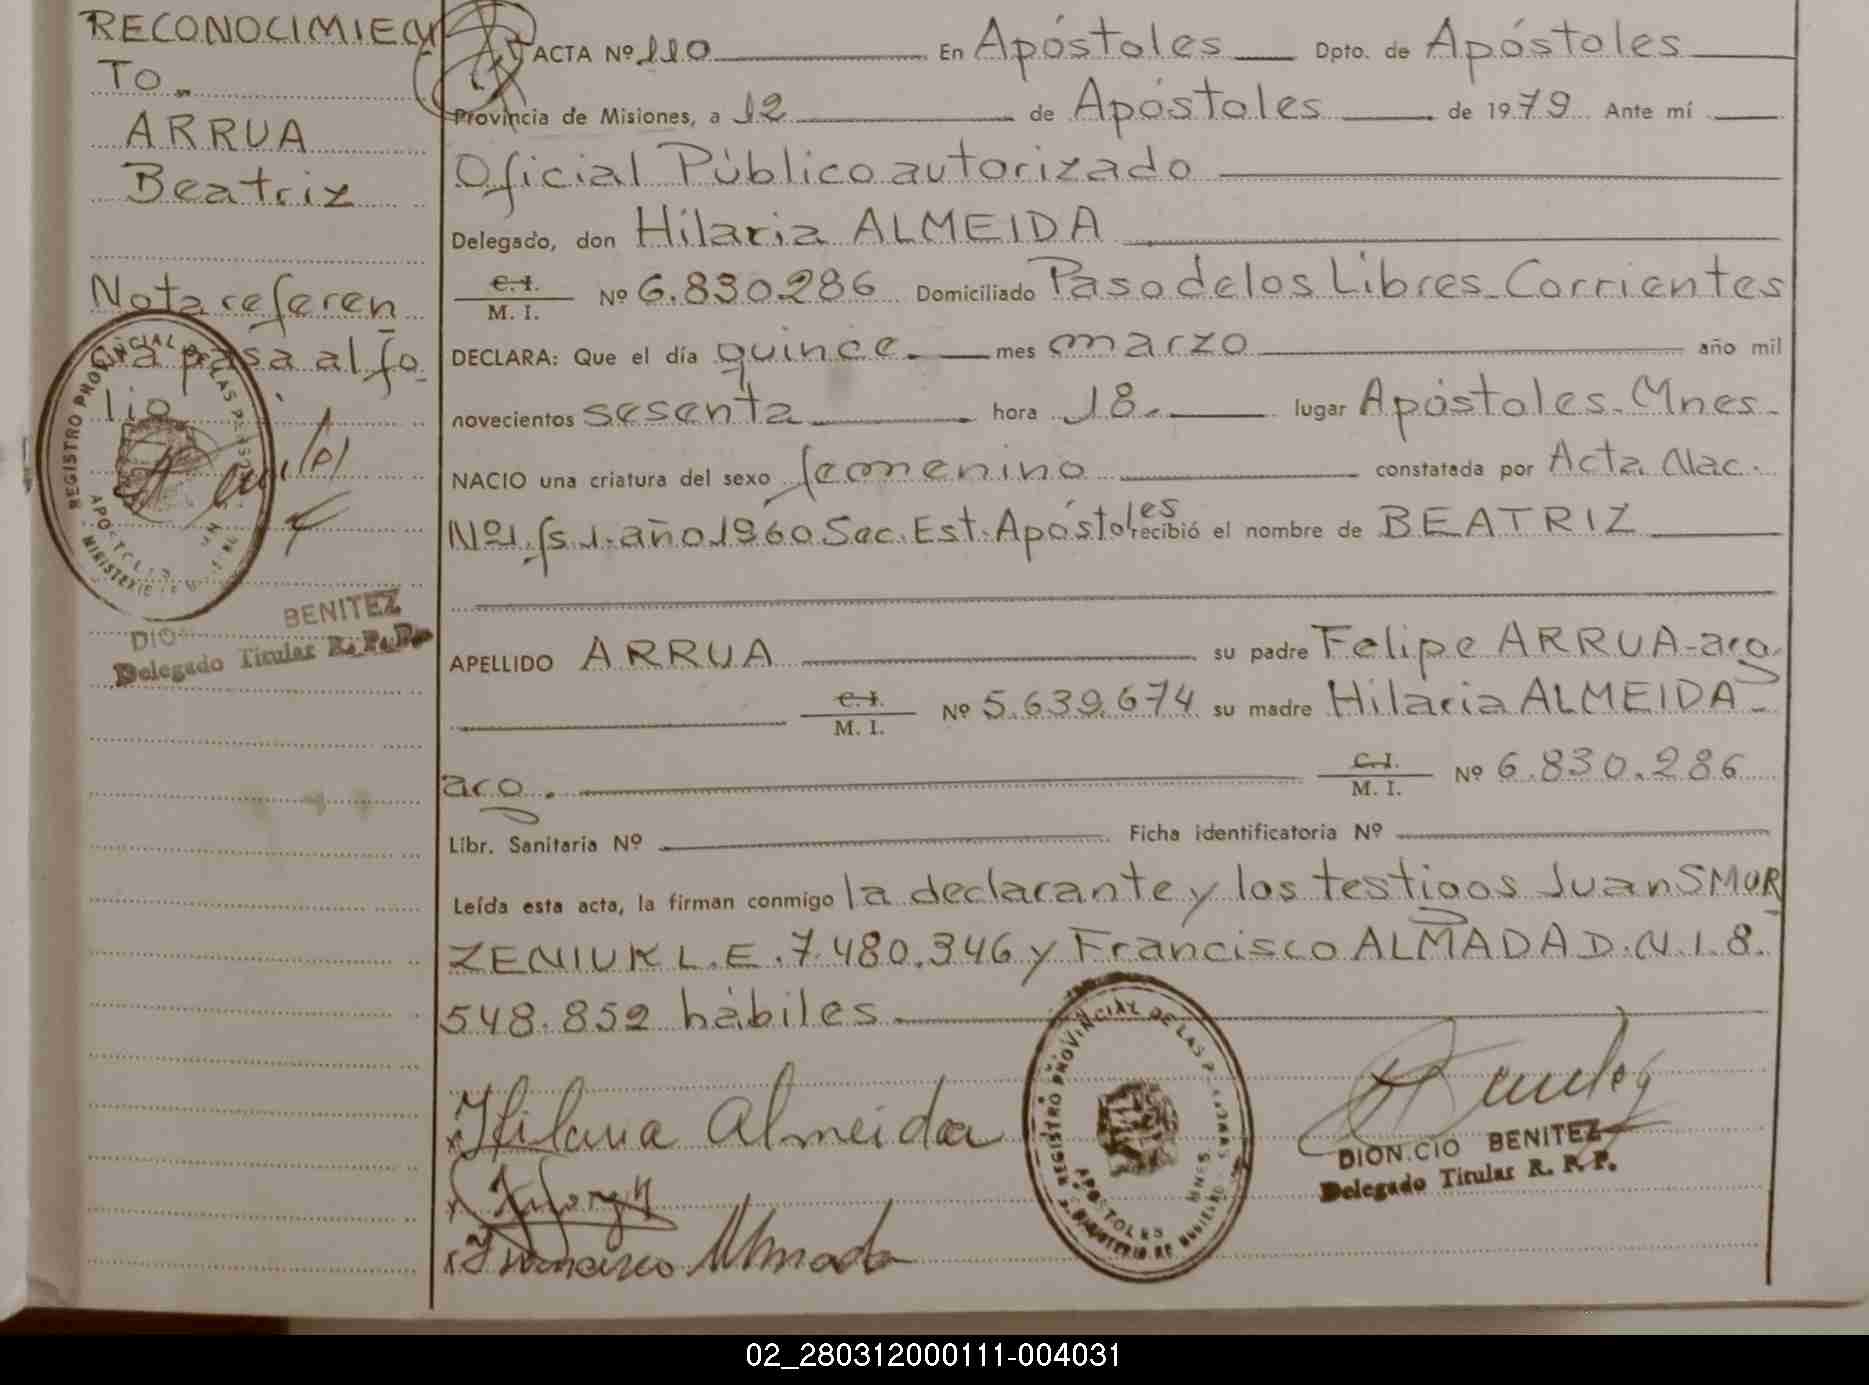 RECONOCIMIEN
TO.
ARRUA
Beatriz
Nota referen
cia pasa al fo
lio
REGISTRO PROVINCIAL DE LAS
APOSTOLES
BENITEZ
Delegado Titular R. P. P.
ACTA Nº 110 En Apóstoles Dpto. de Apóstoles
Provincia de Misiones, a 12 de Apóstoles de 1979 Ante mí
Oficial Público autorizado
Delegado, don Hilaria ALMEIDA
C. I.
M. I. Nº 6.830.286 Domiciliado Paso de los Libres-Corrientes
DECLARA: Que el día quince mes marzo año mil
novecientos sesenta hora 18. lugar Apóstoles-Mnes-
NACIO una criatura del sexo femenino constatada por Acta Nac.
Nº 1. fs 1. año 1960 Sec. Est. Apóstoles recibió el nombre de BEATRIZ
APELLIDO ARRUA su padre Felipe ARRUA-arg.
C. I.
M. I. Nº 5.639.674 su madre Hilaria ALMEIDA-
arg.
C. I.
M. I. Nº 6.830.286
Libr. Sanitaria Nº Ficha identificatoria Nº
Leída esta acta, la firman conmigo la declarante y los testigos Juan SMUR
ZENIUK L.E. 7.480.346 y Francisco ALMADA D.N.I. 8.
548.852 hábiles
Hilaria Almeida
Francisco Almada
REGISTRO PROVINCIAL DE LAS P
APOSTOLES MNES.
DIONICIO BENITEZ
Delegado Titular R. P. P.
02_280312000111-004031